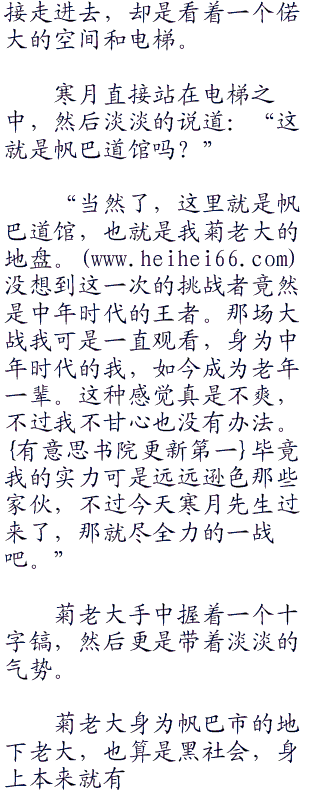 接走进去，却是看着一个偌
大的空间和电梯。
寒月直接站在电梯之
中，然后淡淡的说道：“这
就是帆巴道馆吗？”
“当然了，这里就是帆
巴道馆，也就是我菊老大的
地盘。(www.heihei66.com)
没想到这一次的挑战者竟然
是中年时代的王者。那场大
战我可是一直观看，身为中
年时代的我，如今成为老年
一辈。这种感觉真是不爽，
不过我不甘心也没有办法。
{有意思书院更新第一}毕竟
我的实力可是远远逊色那些
家伙，不过今天寒月先生过
来了，那就尽全力的一战
吧。”
菊老大手中握着一个十
字镐，然后更是带着淡淡的
气势。
菊老大身为帆巴市的地
下老大，也算是黑社会，身
上本来就有